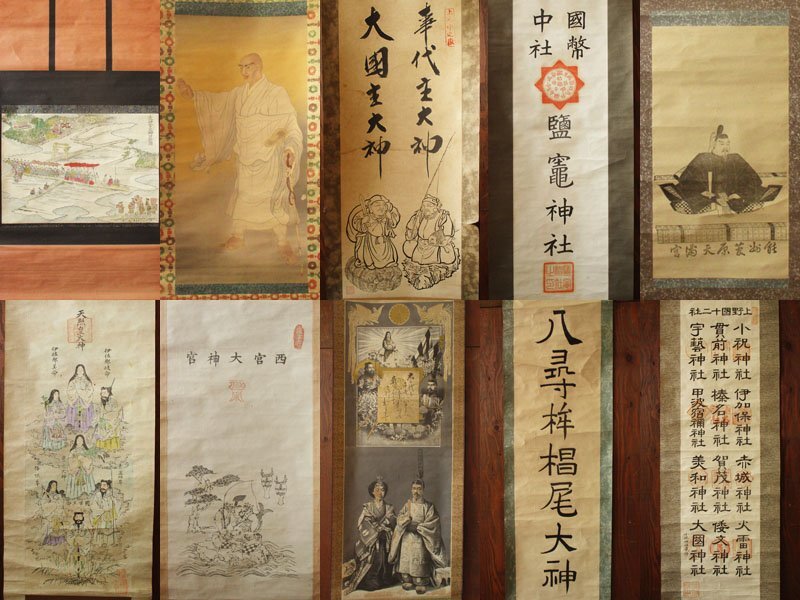 事代主大神
大國主大神
國幣
中社
鹽竈神社
能州菅原天満宮
天照皇大神
西宮大神宮
八尋桙椙尾大神
上野國十二社
小祝神社 伊加保神社 赤城神社 火雷神社
貫前神社 榛名神社 賀茂神社 倭文神社
宇藝神社 甲波宿禰神社 美和神社 大國神社